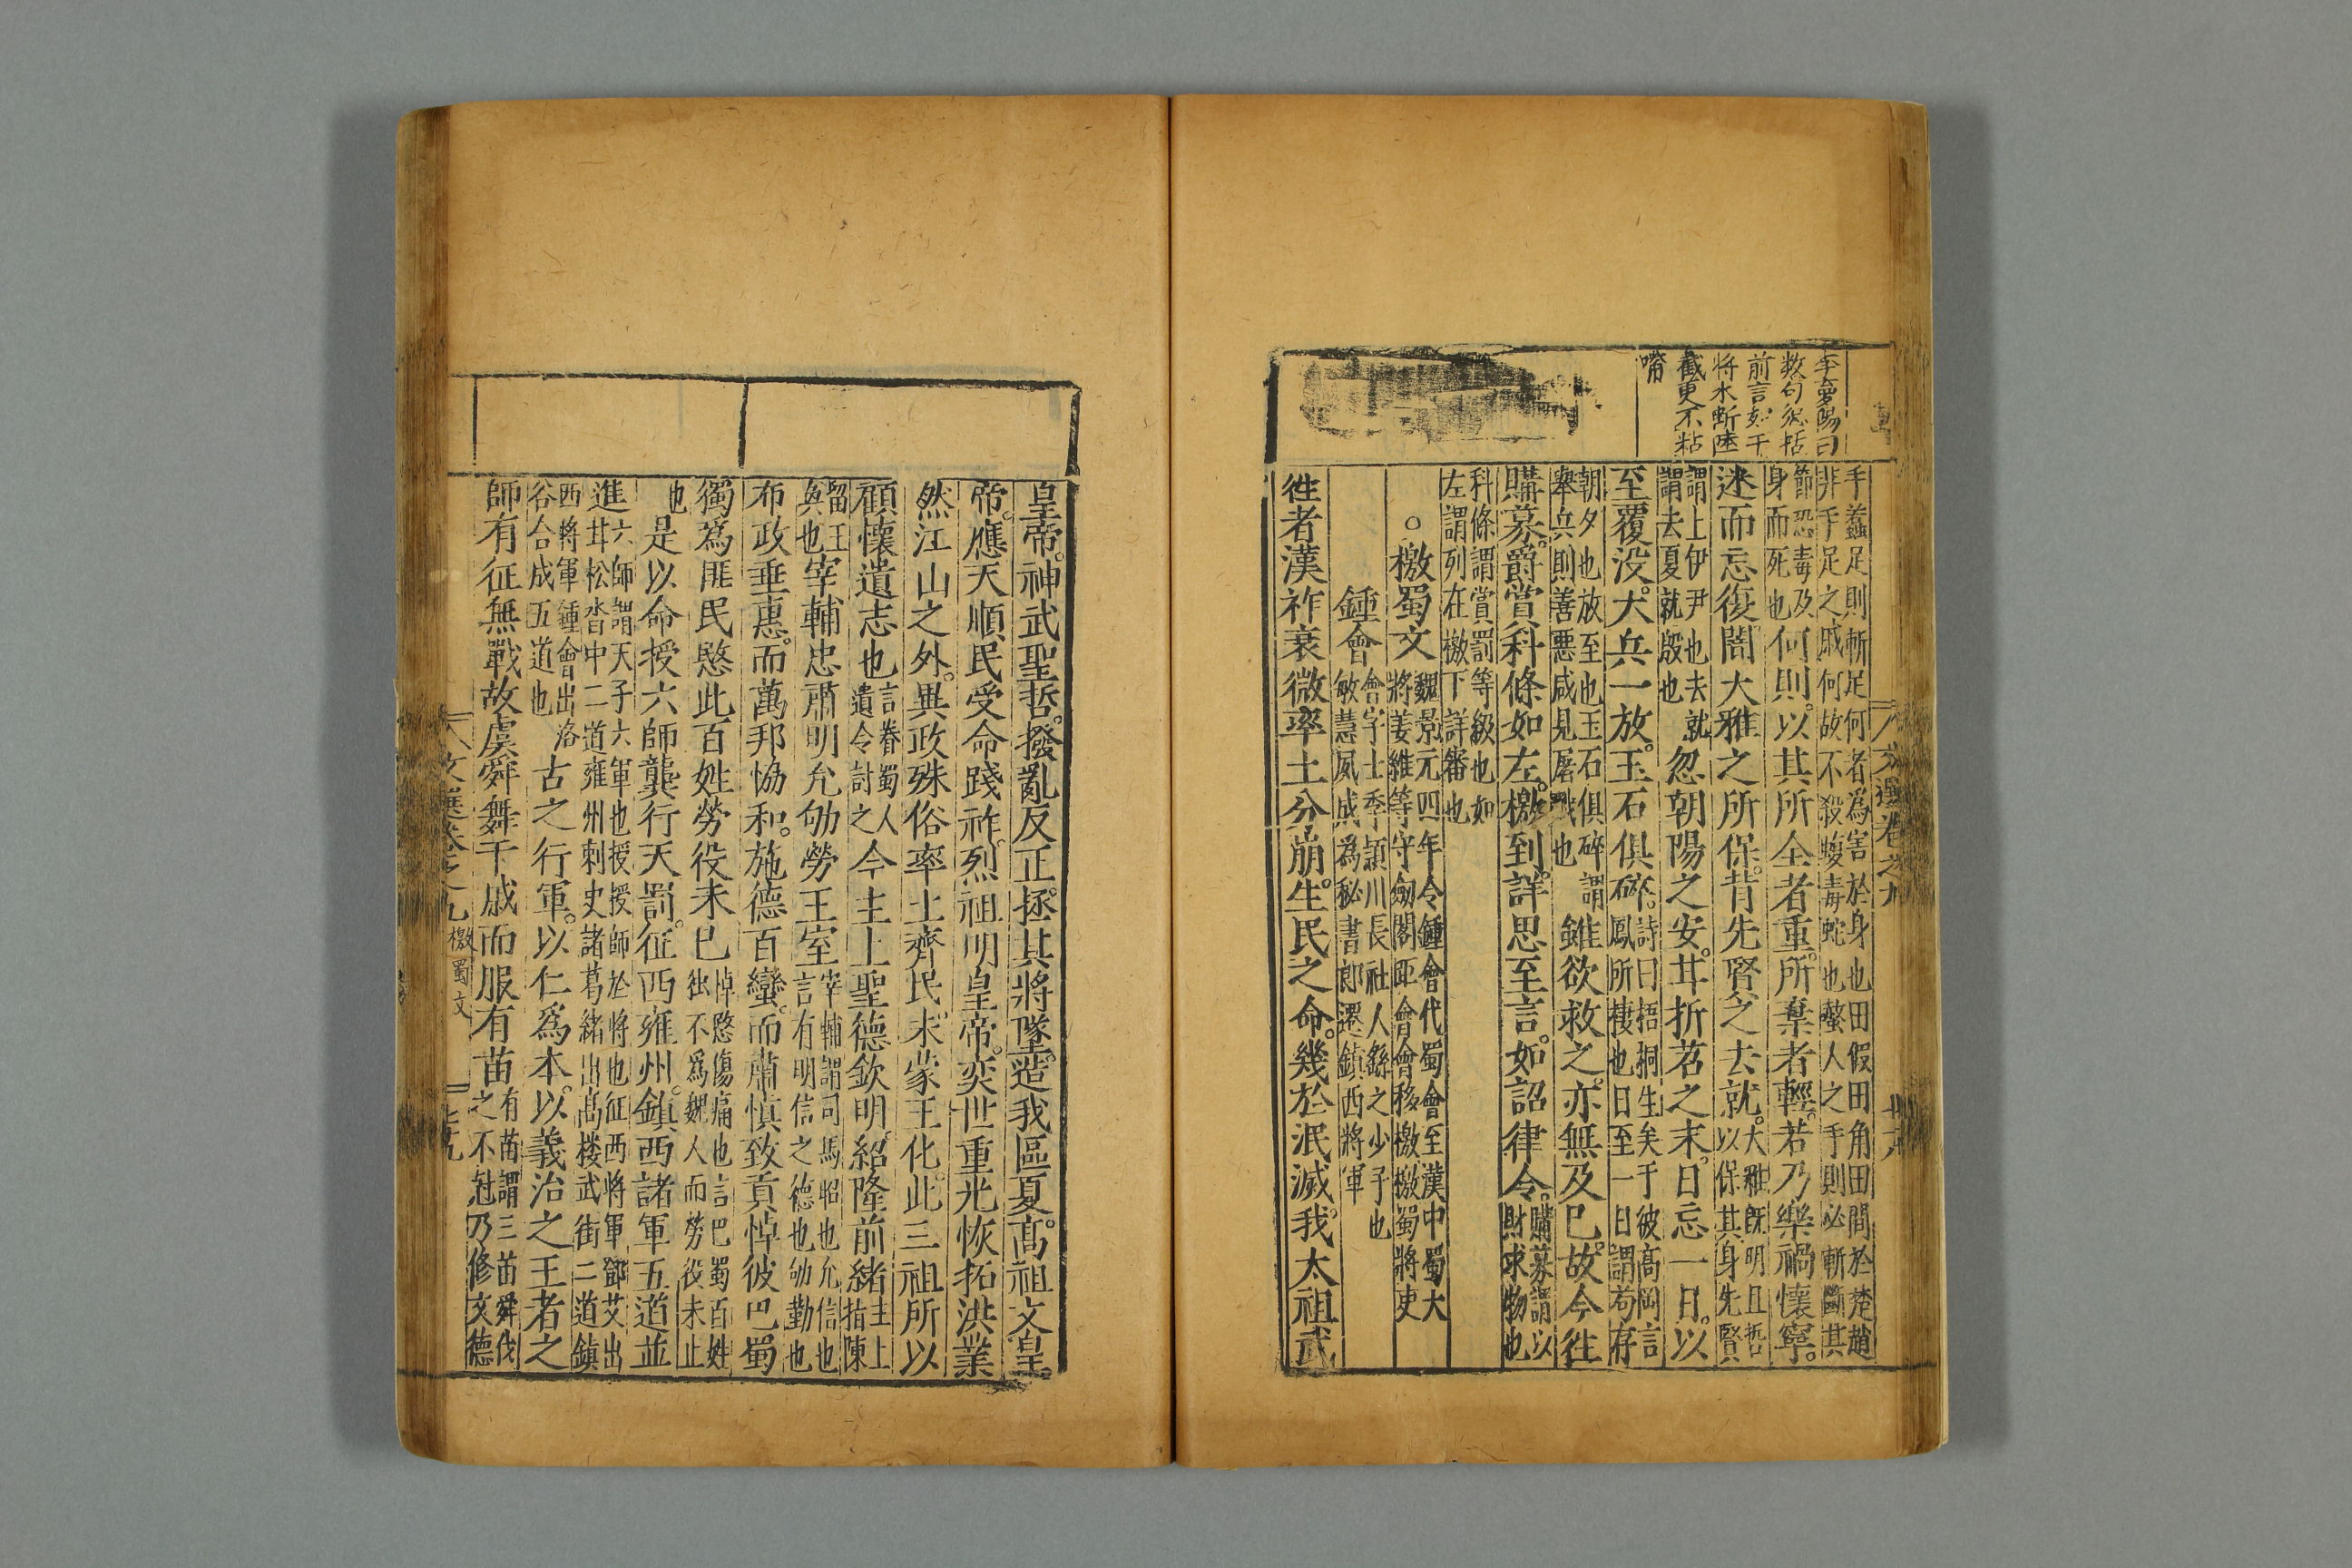 李夢陽曰
数句總括
前言如干
将水斬陸
截更不粘
嚌
文選卷之九
手蠚足則斬足何者爲害於身也田假田角田間於楚趙
非手足之戚何故不殺蝮毒蛇也螫人之手則必斬斷其
節恐毒及
身而死也何則以其所全者重所棄者輕若乃樂禍懷寧
迷而忘復闇大雅之所保背先賢之去就大雅既明且哲
以保其身先賢
謂上伊尹也去就
謂去夏就殷也忽朝陽之安甘折苕之末日忘一日以
至覆没大兵一放玉石俱碎詩曰梧桐生矣于彼高岡言
鳳所棲也日至一日謂苟存
朝夕也放至也玉石俱碎謂
舉兵則善惡咸見屠戮也雖欲救之亦無及巳故令徃
購募爵賞科條如左檄到詳思至言如詔律令購募謂以
財求物也
科條謂賞罰等級也如
左謂列在檄下詳審也
○檄蜀文魏景元四年令鍾會代蜀會至漢中蜀大
將姜維等守劔閣距會會移檄檄蜀將吏
鍾會會字士季頴川長社人繇之少子也
敏慧夙成爲秘書郎遷鎮西將軍
徃者漢祚衰微率土分崩生民之命幾於泯滅我太祖武
皇帝神武聖哲撥亂反正拯其將墜造我區夏高祖文皇
帝應天順民受命踐祚烈祖明皇帝奕世重光恢拓洪業
然江山之外異政殊俗率土齊民未蒙王化此三祖所以
顧懷遺志也言眷蜀人
遺令討之今主上聖德欽明紹隆前緒主上
指陳
留王
奐也宰輔忠肅明允劬勞王室宰輔謂司馬昭也允信也
言有明信之德也劬勤也
布政垂惠而萬邦恊和施德百蠻而肅慎致貢悼彼巴蜀
獨爲匪民愍此百姓勞役未巳悼愍傷痛也言巴蜀百姓
獨不爲魏人而勞役未止
也是以命授六師龔行天罰征西雍州鎮西諸軍五道並
進六師謂天子六軍也授授師於將也征西將軍鄧艾出
甘松沓中二道雍州刺史諸葛緒出高楼武街二道鎮
西將軍鍾會出洛
谷合成五道也古之行軍以仁爲本以義治之王者之
師有征無戰故虞舜舞干戚而服有苗有苗謂三苗舜伐
之不尅乃修文德
文選卷之九 檄蜀文